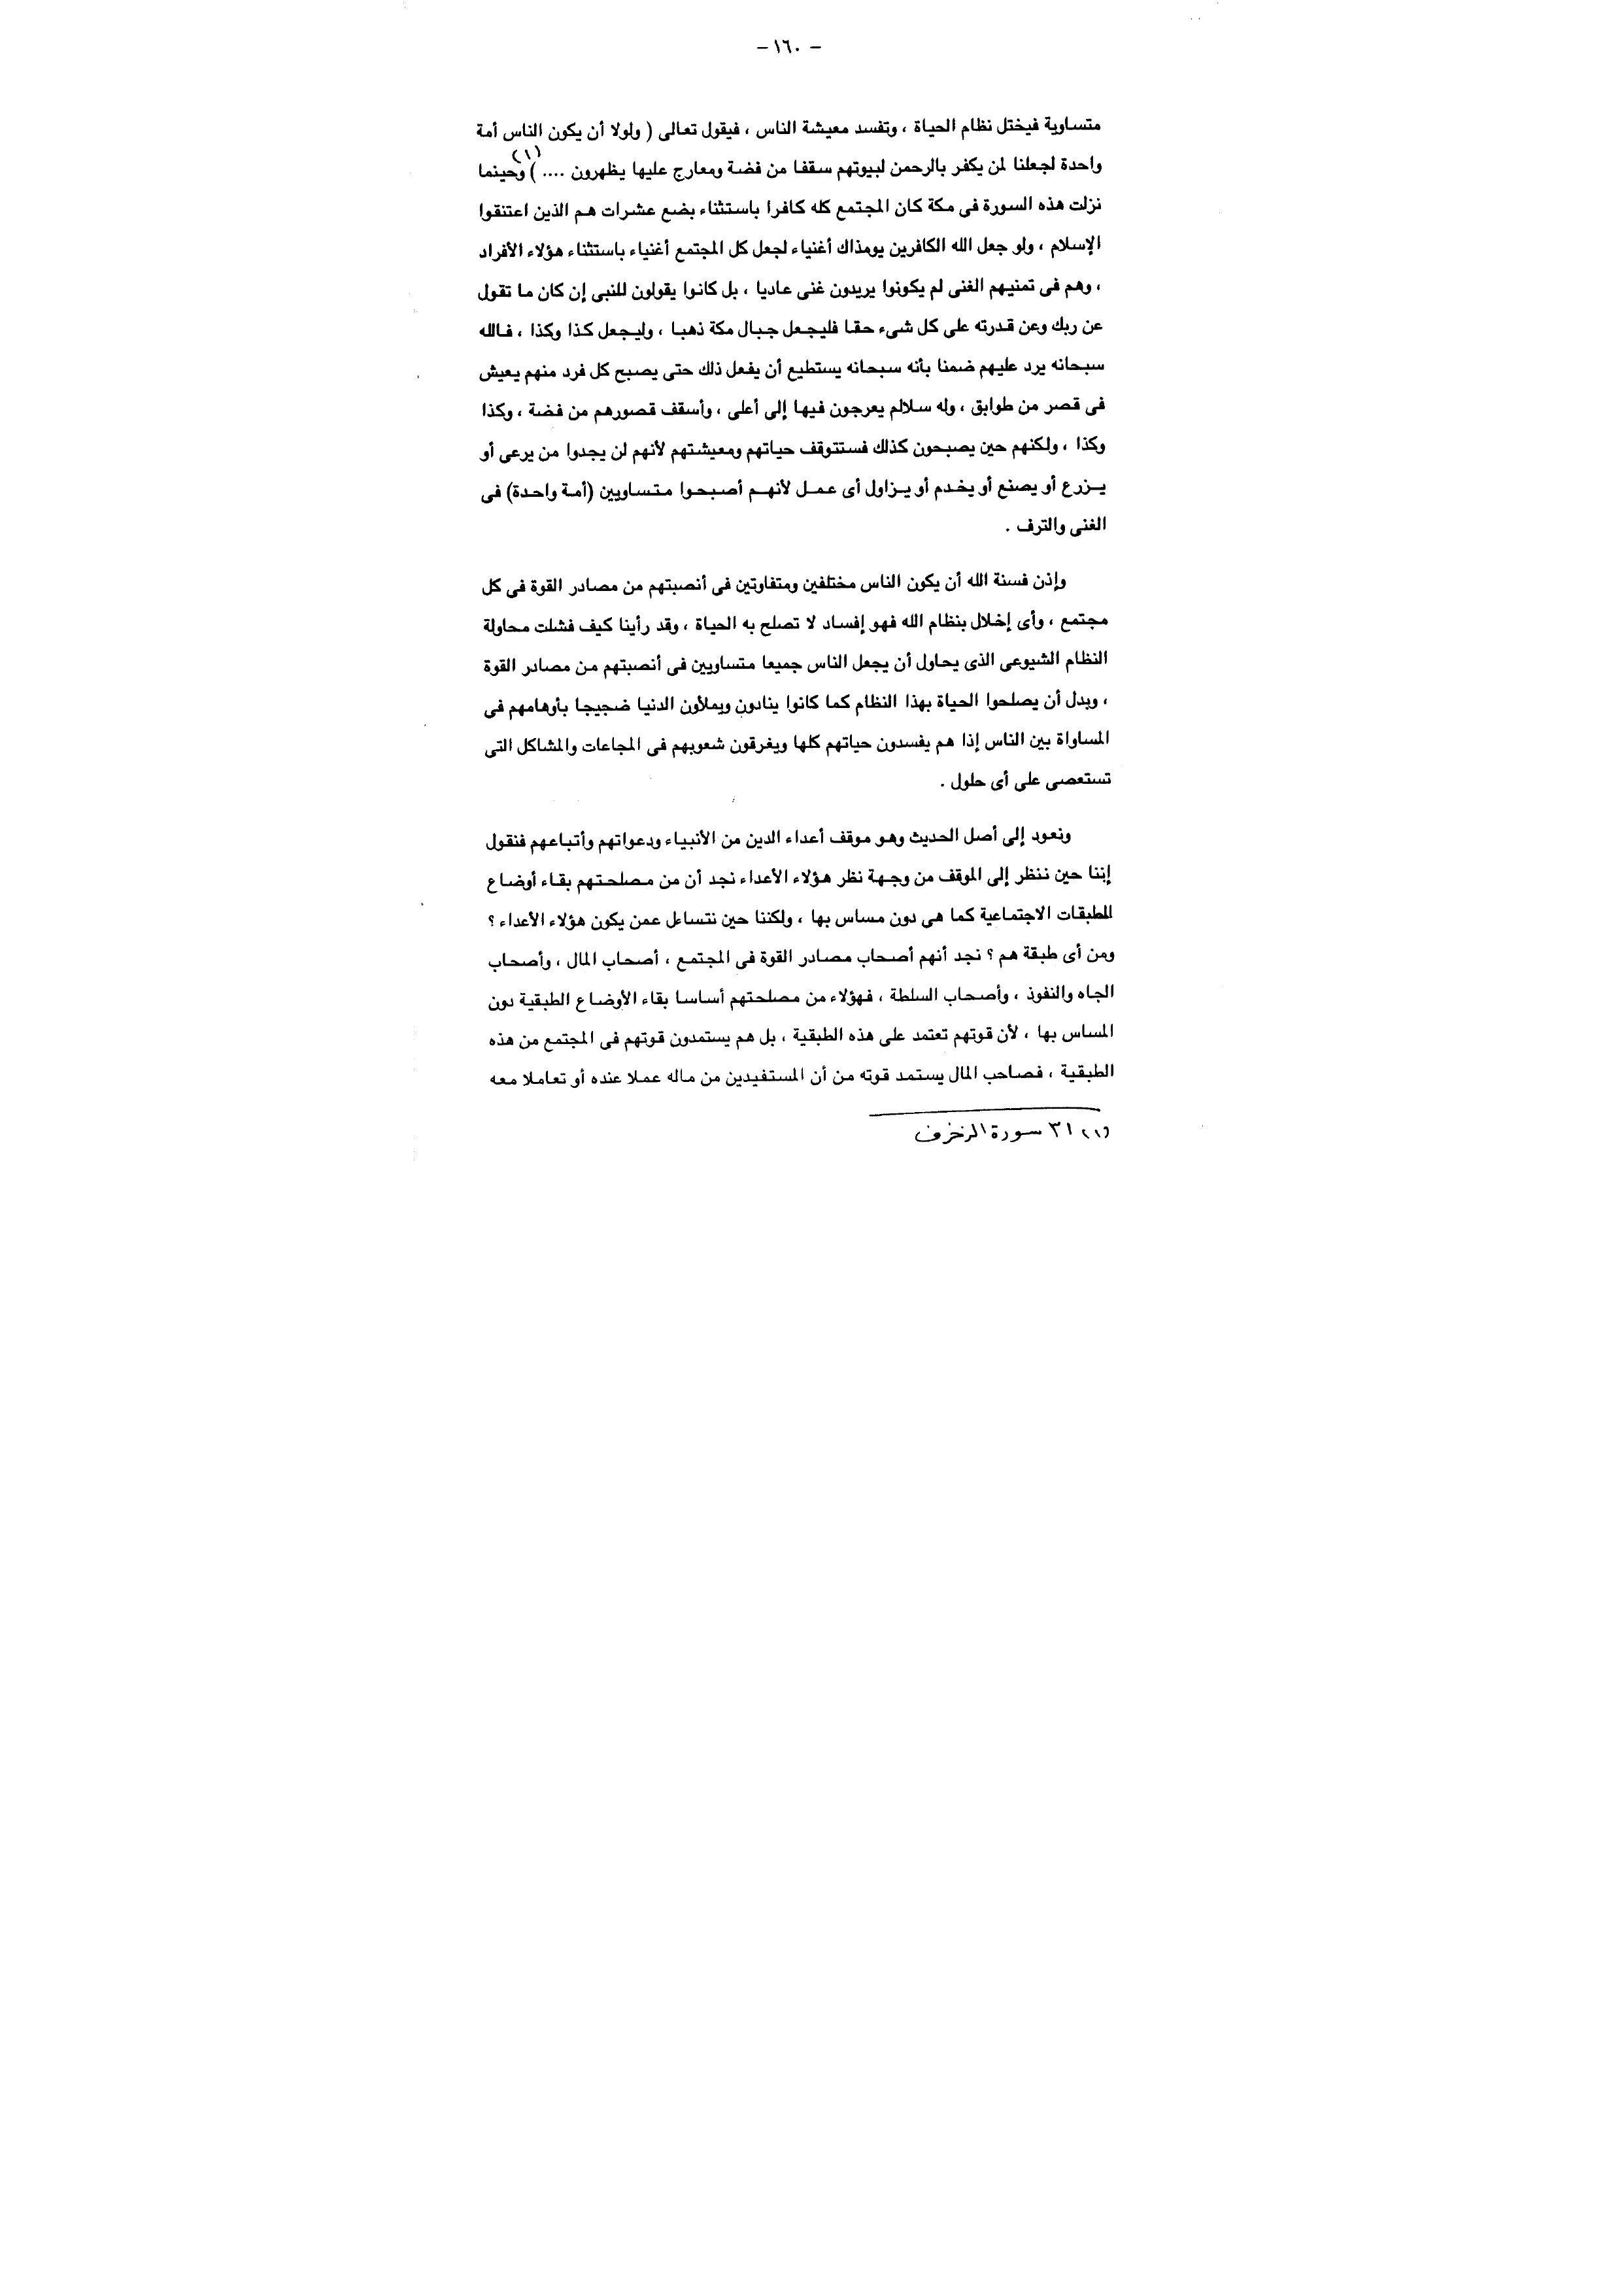 – ١٦٠ –
متساوية فيختل نظام الحياة ، وتفسد معيشة الناس ، فيقول تعالى ( ولولا أن يكون الناس أمة
واحدة لجعلنا لمن يكفر بالرحمن لبيوتهم سقفا من فضة ومعارج عليها يظهرون .... ) (١) وحينما
نزلت هذه السورة فى مكة كان المجتمع كله كافرا باستثناء بضع عشرات هم الذين اعتنقوا
الإسلام ، ولو جعل الله الكافرين يومذاك أغنياء لجعل كل المجتمع أغنياء باستثناء هؤلاء الأفراد
، وهم فى تمنيهم الغنى لم يكونوا يريدون غنى عاديا ، بل كانوا يقولون للنبى إن كان ما تقول
عن ربك وعن قدرته على كل شىء حقا فليجعل جبال مكة ذهبا ، وليجعل كذا وكذا ، فالله
سبحانه يرد عليهم ضمنا بأنه سبحانه يستطيع أن يفعل ذلك حتى يصبح كل فرد منهم يعيش
فى قصر من طوابق ، وله سلالم يعرجون فيها إلى أعلى ، وأسقف قصورهم من فضة ، وكذا
وكذا ، ولكنهم حين يصبحون كذلك فستتوقف حياتهم ومعيشتهم لأنهم لن يجدوا من يرعى أو
يزرع أو يصنع أو يخدم أو يزاول أى عمل لأنهم أصبحوا متساويين (أمة واحدة) فى
الغنى والترف .
وإذن فسنة الله أن يكون الناس مختلفين ومتفاوتين فى أنصبتهم من مصادر القوة فى كل
مجتمع ، وأى إخلال بنظام الله فهو إفساد لا تصلح به الحياة ، وقد رأينا كيف فشلت محاولة
النظام الشيوعى الذى يحاول أن يجعل الناس جميعا متساويين فى أنصبتهم من مصادر القوة
، وبدل أن يصلحوا الحياة بهذا النظام كما كانوا ينادون ويملأون الدنيا ضجيجا بأوهامهم فى
المساواة بين الناس إذا هم يفسدون حياتهم كلها ويغرقون شعوبهم فى المجاعات والمشاكل التى
تستعصى على أى حلول .
ونعود إلى أصل الحديث وهو موقف أعداء الدين من الأنبياء ودعواتهم وأتباعهم فنقول
إننا حين ننظر إلى الموقف من وجهة نظر هؤلاء الأعداء نجد أن من مصلحتهم بقاء أوضاع
الطبقات الاجتماعية كما هى دون مساس بها ، ولكننا حين نتساءل عمن يكون هؤلاء الأعداء ؟
ومن أى طبقة هم ؟ نجد أنهم أصحاب مصادر القوة فى المجتمع ، أصحاب المال ، وأصحاب
الجاه والنفوذ ، وأصحاب السلطة ، فهؤلاء من مصلحتهم أساسا بقاء الأوضاع الطبقية دون
المساس بها ، لأن قوتهم تعتمد على هذه الطبقية ، بل هم يستمدون قوتهم فى المجتمع من هذه
الطبقية ، فصاحب المال يستمد قوته من أن المستفيدين من ماله عملا عنده أو تعاملا معه
(١) ٣١ سورة الزخرف